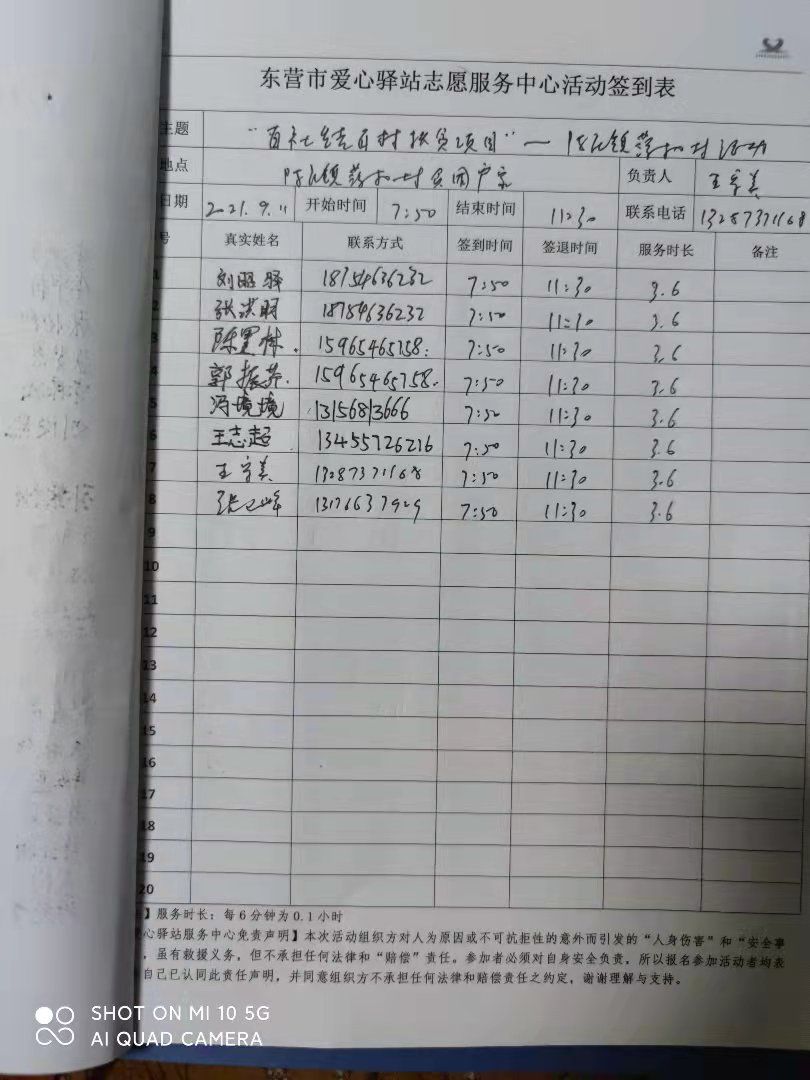 东营市爱心驿站志愿服务中心活动签到表
主题 "百社结百村扶贫项目"—陈庄镇薄扣村活动
地点 陈庄镇薄扣村贫困户家 负责人 王守美
日期 2021.9.11 开始时间 7:50 结束时间 11:30 联系电话 13287371168
号 真实姓名 联系方式 签到时间 签退时间 服务时长 备注
1 刘昭驿 18754636232 7:50 11:30 3.6
2 张洪明 18754636232 7:50 11:30 3.6
3 陈 林. 15965465758. 7:50 11:30 3.6
4 郭振芬. 15965465758. 7:50 11:30 3.6
5 冯境境 13156813666 7:50 11:30 3.6
6 王志超 13455726216 7:50 11:30 3.6
7 王守美 13287371168 7:50 11:30 3.6
8 张 峰 13176637929 7:50 11:30 3.6
9
10
11
12
13
14
15
16
17
18
19
20
】服务时长：每6分钟为0.1小时
心驿站服务中心免责声明】本次活动组织方对人为原因或不可抗拒性的意外而引发的“人身伤害”和“安全事
，虽有救援义务，但不承担任何法律和“赔偿”责任。参加者必须对自身安全负责，所以报名参加活动者均表
自己已认同此责任声明，并同意组织方不承担任何法律和赔偿责任之约定，谢谢理解与支持。
SHOT ON MI 10 5G
AI QUAD CAMERA